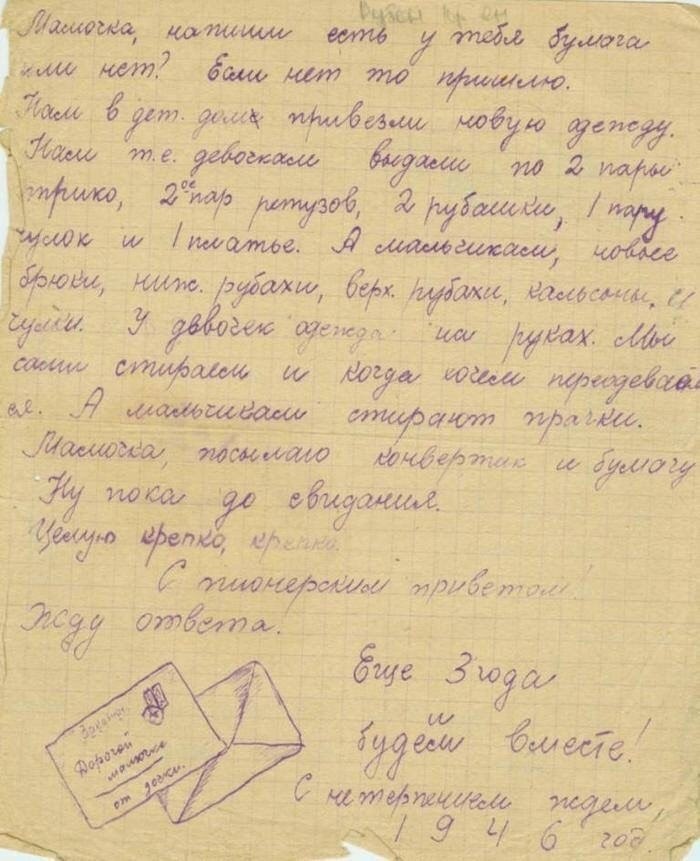 Мамочка, напиши есть у тебя бумага
или нет? Если нет то пришлю.
Нам в дет. дом привезли новую одежду.
Нам т.е. девочкам выдали по 2 пары
трико, 2ое пар ретузов, 2 рубашки, 1 пару
чулок и 1 платье. А мальчикам, новые
брюки, ниж. рубахи, верх. рубахи, кальсоны, и
чулки. У девочек одежда на руках. Мы
сами стираем и когда хочем переодеваем
ся. А мальчикам стирают прачки.
Мамочка, посылаю конвертик и бумагу
Ну пока до свидания.
Целую крепко, крепко.
С пионерским приветом!
Жду ответа.
Еще 3 года
и
будем вместе!
С нетерпением ждем,
1946 год.
Дорогой
мамочке
от дочки.